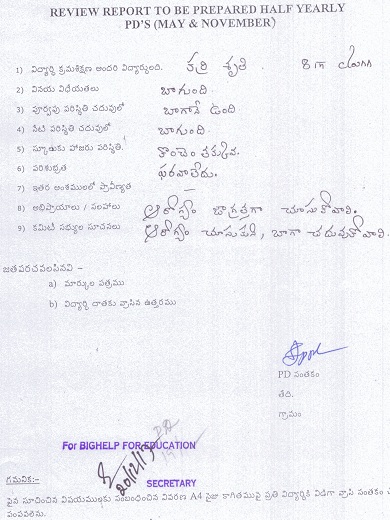 REVIEW REPORT TO BE PREPARED HALF YEARLY
PD'S (MAY & NOVEMBER)
1) విద్యార్థి క్రమశిక్షణ అందరి విద్యార్థులది. శృతి . 8th class
2) వినయ విధేయతలు బాగుంది.
3) పూర్వపు పరిస్థితి చదువులో బాగానే ఉంది
4) నేటి పరిస్థితి చదువులో బాగుంది.
5) స్కూతుకు హాజరు పరిస్థితి. కొంచెం తక్కువ.
6) పరిశుభ్రత పరవాలేదు.
7) ఇతర అంశములలో ప్రావీణ్యత
8) అభిప్రాయాలు / సలహాలు ఆరోగ్యం జాగ్రత్తగా చూసుకోవాలి.
9) కమిటీ సభ్యుల సూచనలు ఆరోగ్యం చూసుకుని, బాగా చదువుకోవాలి.
జతపరచవలసినవి :-
a) మార్కుల పత్రము
b) విద్యార్థి దాతకు వ్రాసిన ఉత్తరము
PD సంతకం
తేది.
గ్రామం
For BIGHELP FOR EDUCATION
20/12/13
SECRETARY
గమనిక:-
పైన సూచించిన విషయములకు సంబంధించిన వివరణ A4 సైజు కాగితముపై ప్రతి విద్యార్థికి విడిగా వ్రాసి సంతకం
పంపవలెను.